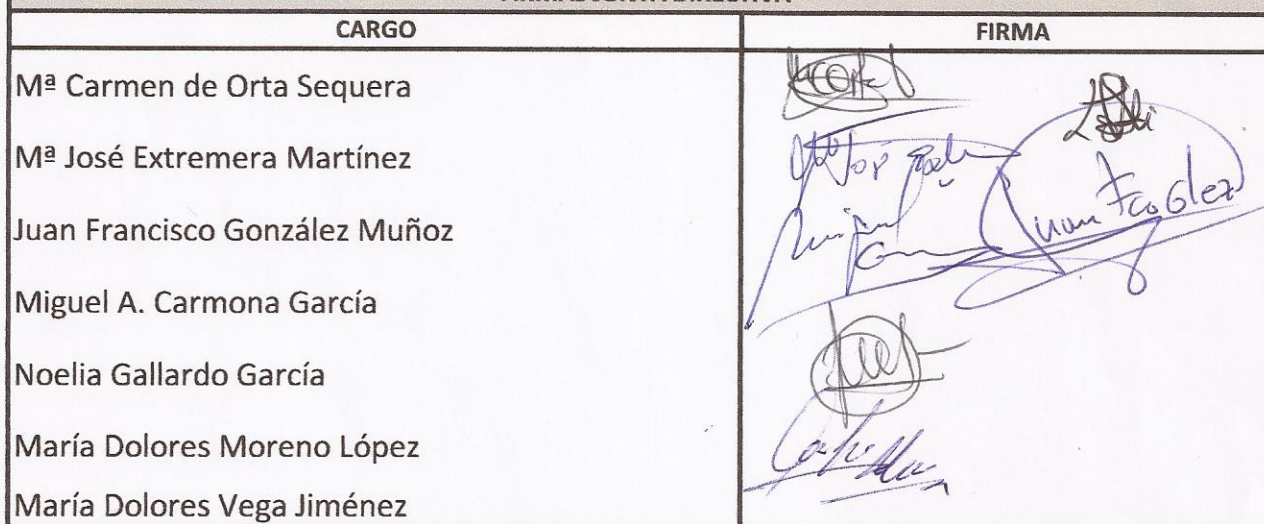 CARGO FIRMA
Mª Carmen de Orta Sequera
Mª José Extremera Martínez
Juan Francisco González Muñoz
Juan Fco Glez
Miguel A. Carmona García
Noelia Gallardo García
María Dolores Moreno López
María Dolores Vega Jiménez